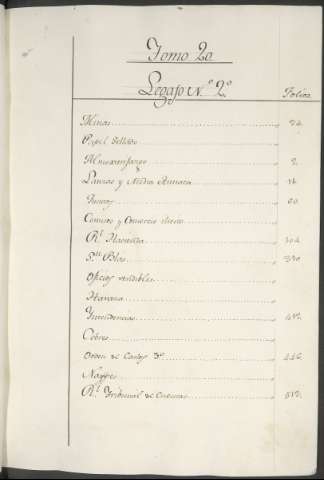 Tomo 20.
Legajo N.º 2º
Folios
Minas 24.
Papel Sellado
Almoxarifazgo 2.
Lanzas y Media Annata
Juros 60.
Comiso y Comercio
Rl. Hacienda 304.
Sn. Blas 330.
Oficios vendibles
Havana
Yncidencias 432.
Cobres
Orden de Carlos 3º 446.
Naypes
Rl. Tribunal de Cuentas 512.